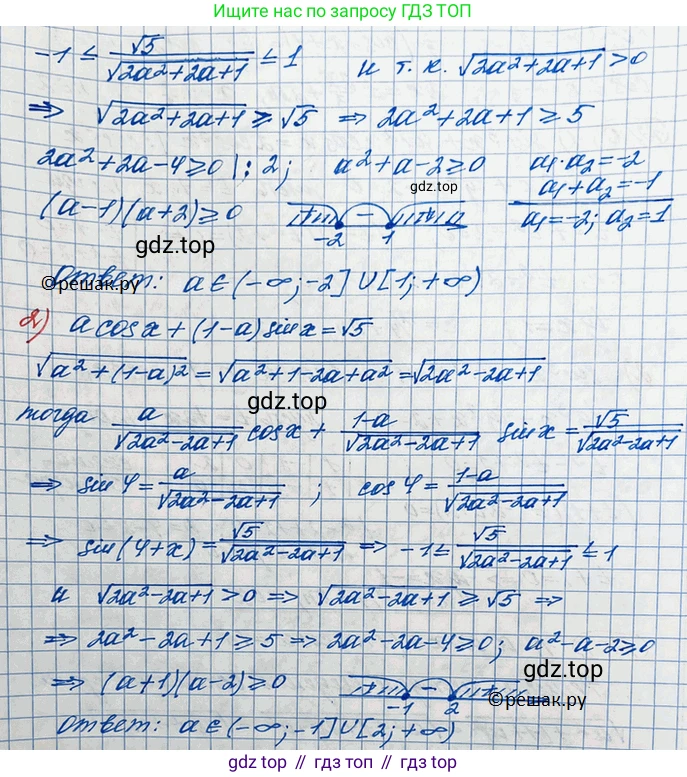 Ищите нас по запросу ГДЗ ТОП
-1 ≤ √5/√(2a²+2a+1) ≤ 1 и т. к. √(2a²+2a+1) > 0
⇒ √(2a²+2a+1) ≥ √5 ⇒ 2a²+2a+1 ≥ 5
2a²+2a-4 ≥ 0 |: 2; a²+a-2 ≥ 0 a₁·a₂ = -2
gdz.top a₁+a₂ = -1
(a-1)(a+2) ≥ 0 + - + -2 1 a₁ = -2; a₂ = 1
gdz.top
Ответ: a ∈ (-∞; -2] ∪ [1; +∞)
©решак.ру
2) a cos x + (1-a) sin x = √5
√(a²+(1-a)²) = √(a²+1-2a+a²) = √(2a²-2a+1)
gdz.top
тогда a/√(2a²-2a+1) cos x + (1-a)/√(2a²-2a+1) sin x = √5/√(2a²-2a+1)
⇒ sin φ = a/√(2a²-2a+1) ; cos φ = (1-a)/√(2a²-2a+1)
⇒ sin(φ+x) = √5/√(2a²-2a+1) ⇒ -1 ≤ √5/√(2a²-2a+1) ≤ 1
и √(2a²-2a+1) > 0 ⇒ √(2a²-2a+1) ≥ √5 ⇒
⇒ 2a²-2a+1 ≥ 5 ⇒ 2a²-2a-4 ≥ 0; a²-a-2 ≥ 0
gdz.top
⇒ (a+1)(a-2) ≥ 0 + - + -1 2
©решак.ру
Ответ: a ∈ (-∞; -1] ∪ [2; +∞)
гдз топ // гдз топ // гдз топ